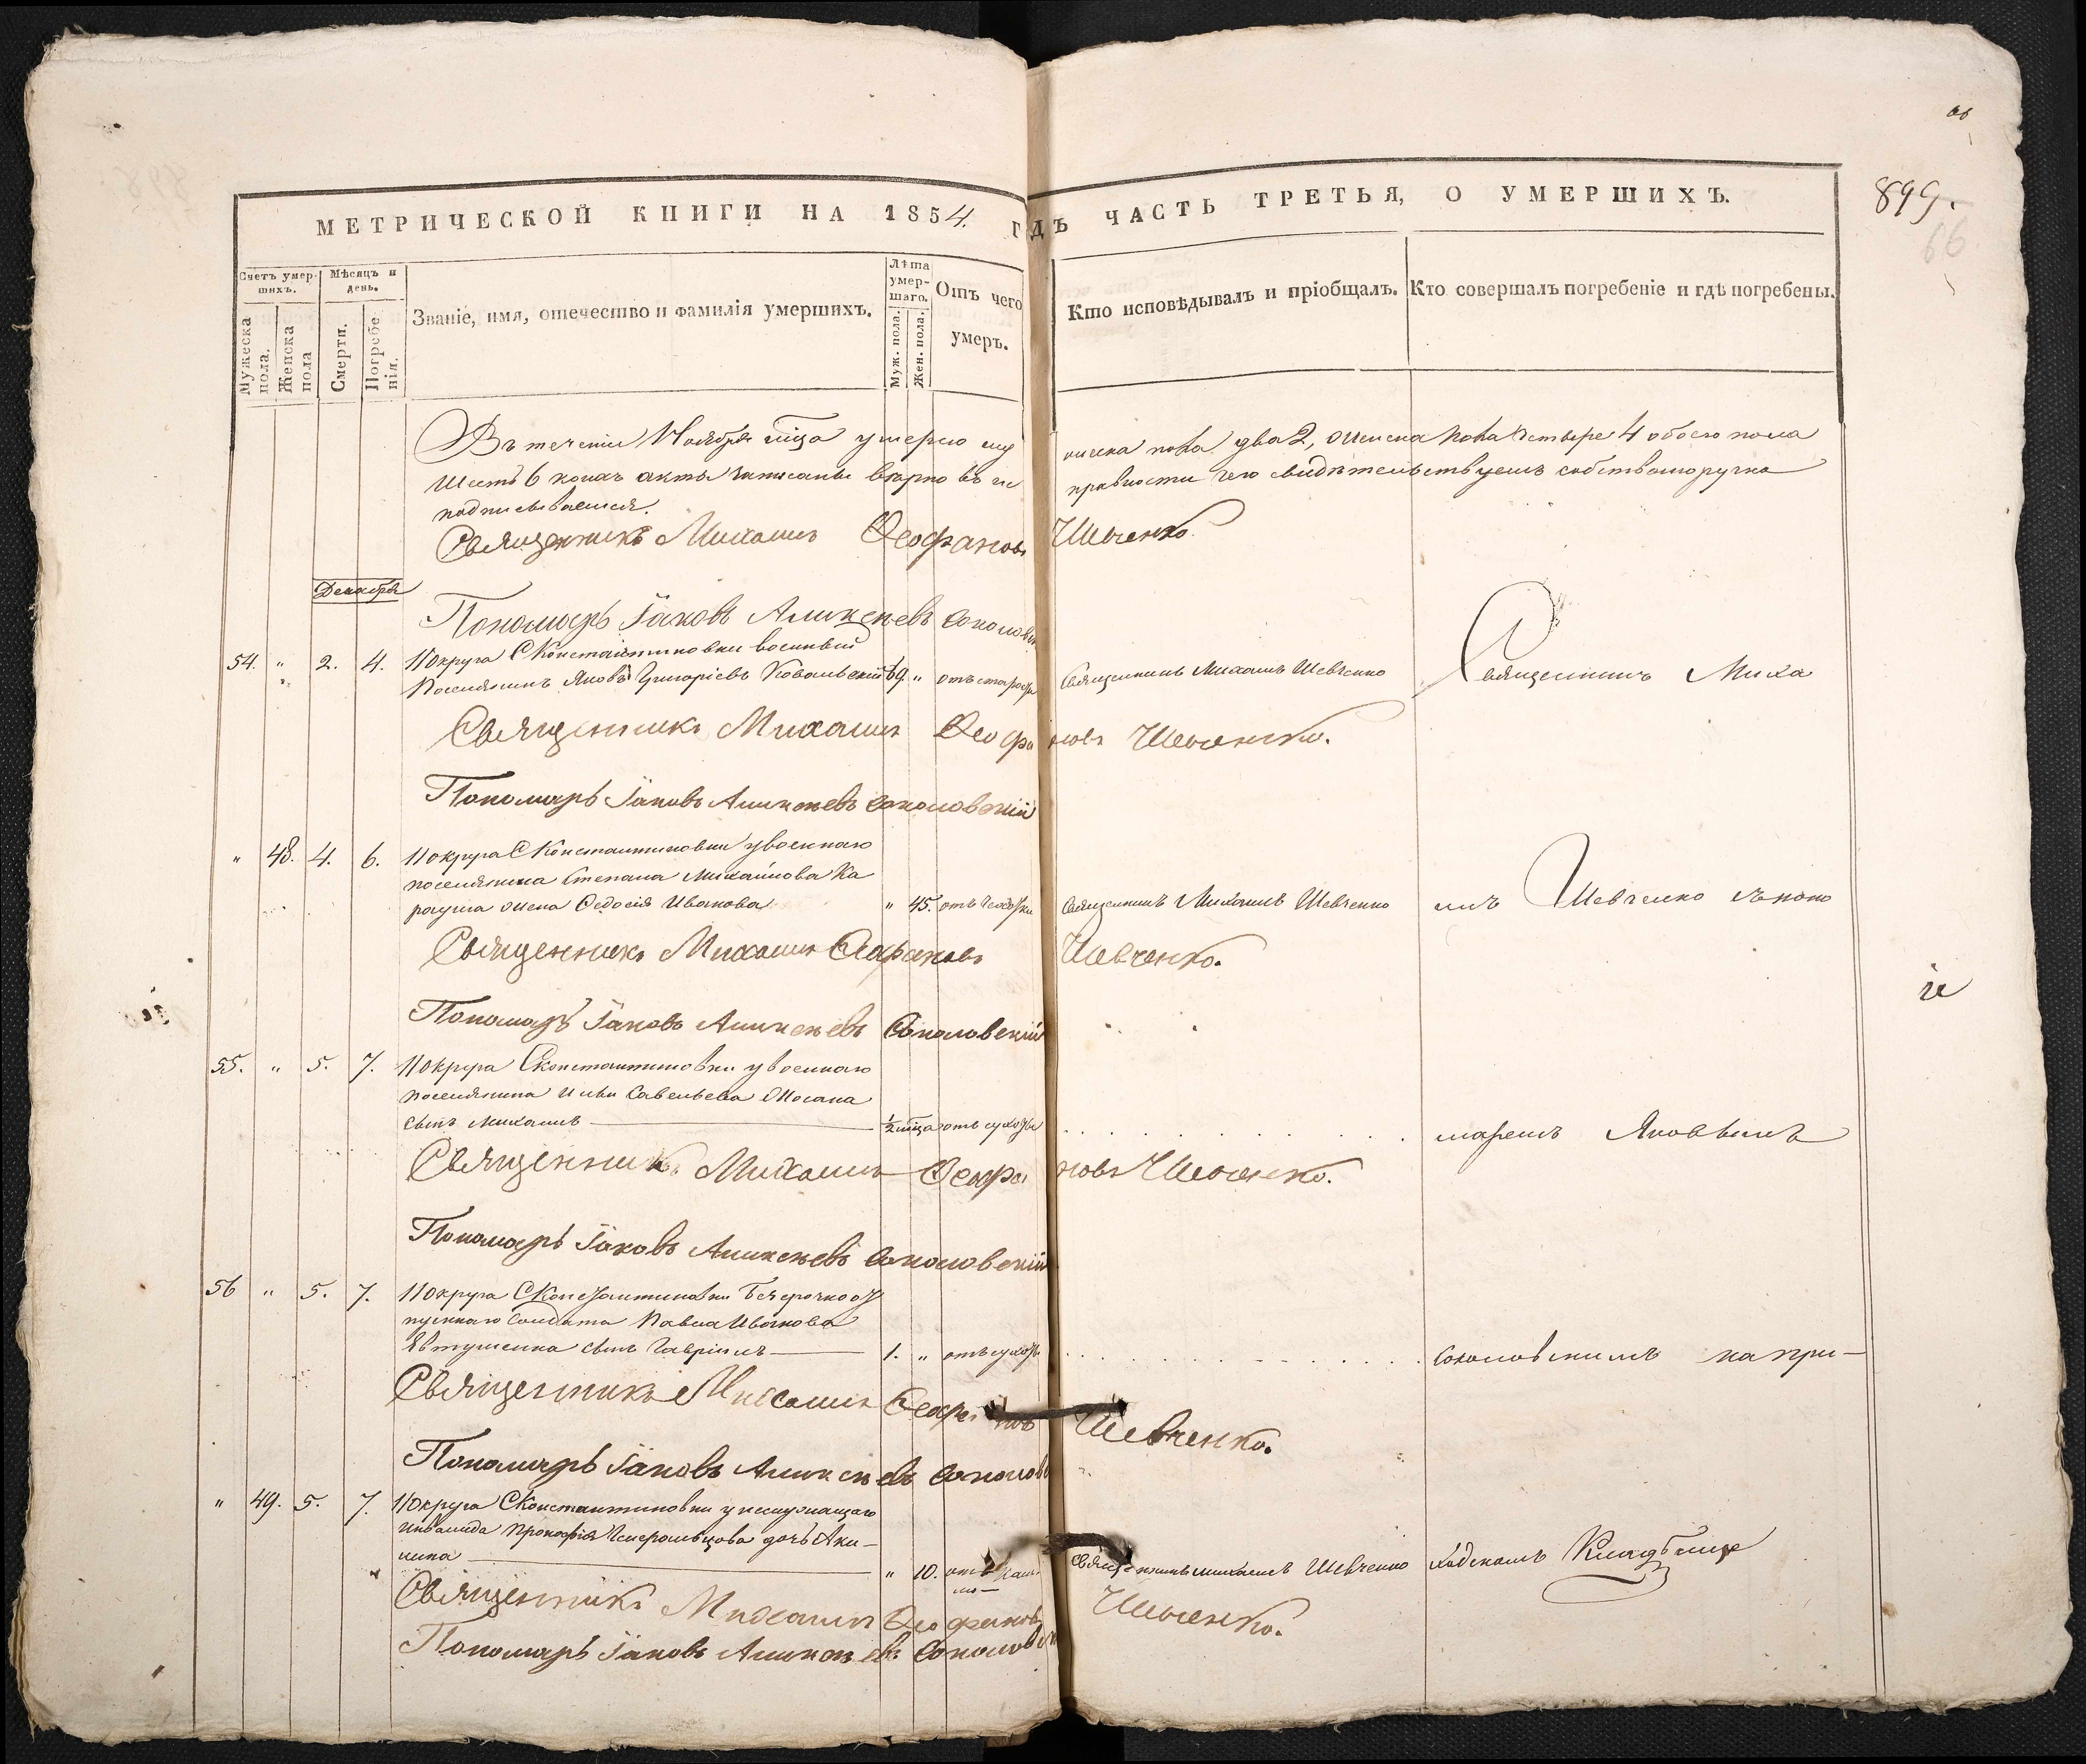 66
899.
66
МЕТРИЧЕСКОЙ КНИГИ НА 1854. ГДЪ ЧАСТЬ ТРЕТЬЯ, О УМЕРШИХЪ.
Счетъ умершихъ.
Мужеска пола.
Женска пола
Мѣсяцъ и день.
Смерти.
Погребенія.
Званіе, имя, отечество и фамилія умершихъ.
Лѣта умершаго.
Муж. пола.
Жен. пола.
Отъ чего умеръ.
Кто исповѣдывалъ и пріобщалъ.
Кто совершалъ погребеніе и гдѣ погребены.
Въ теченіи Ноября мца умерло му жеска пола два 2, женска пола четыре 4 обоего пола
шесть 6 коихъ акты записаны вѣрно въ справности чего свидѣтельствуемъ собственоручно
подписываемся.
Священникъ Михаилъ Феофановъ Шевченко
Декабря
Пономарь Іаковъ Аликсѣевъ Соколов
54. " 2. 4. 11 округа С Константиновки военный
поселянинъ Яковъ Григоріевъ Ковальскій 69. " отъ старости Священникъ Михаилъ Шевченко Священникъ Миха
Священникъ Михаилъ Феофановъ Шевченко.
Пономарь Іаковъ Аликсѣевъ Соколовскій
" 48. 4. 6. 11 округа С Константиновки у военнаго
поселянина Степана Михайлова Ка
рауша жена Федосія Иванова " 45. отъ чахотки Священникъ Михаилъ Шевченко илъ Шевченко съ поно
Священникъ Михаилъ Феофановъ Шевченко.
Пономарь Іаковъ Аликсѣевъ Соколовскій
55. " 5. 7. 11 округа С Константиновки у военнаго
поселянина Ильи Савельева
сынъ Михаилъ 1/2 мца отъ сухотъ маремъ Яковымъ
Священникъ Михаилъ Феофановъ Шевченко.
Пономарь Іаковъ Аликсѣевъ Соколовскій
56 " 5. 7. 11 округа С Константиновки безсрочноот
пускнаго солдата Павла Иванова
Евтушенка сынъ Гавріилъ 1. " отъ сухотъ Соколовскимъ на при-
Священникъ Михаилъ Феофановъ Шевченко.
Пономарь Іаковъ Аликсѣевъ Соколов
" 49. 5. 7. 11 округа С Константиновки у неслужащаго
инвалида Прокофія дочь Аки-
лина " 10. отъ кашлю Священникъ Михаилъ Шевченко ходскомъ Кладбище
Священникъ Михаилъ Феофановъ Шевченко.
Пономарь Іаковъ Аликсѣевъ Соколов